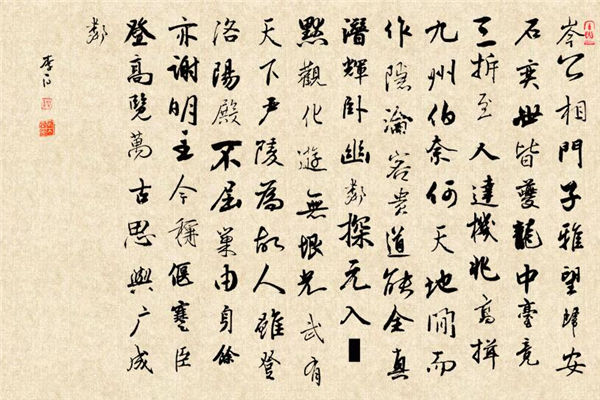 岑公相門子雅望歸安
石奕世皆夔龍中臺竟
三拆至人達機兆高揖
九州伯奈何天地間而
作隱淪客貴道能全真
潛輝卧幽鄰探元入
默觀化遊無垠光武有
天下严陵為故人雖登
洛陽殿不屈巢由身餘
亦謝明主今稱偃蹇臣
登高覽萬古思與广成
鄰
李白